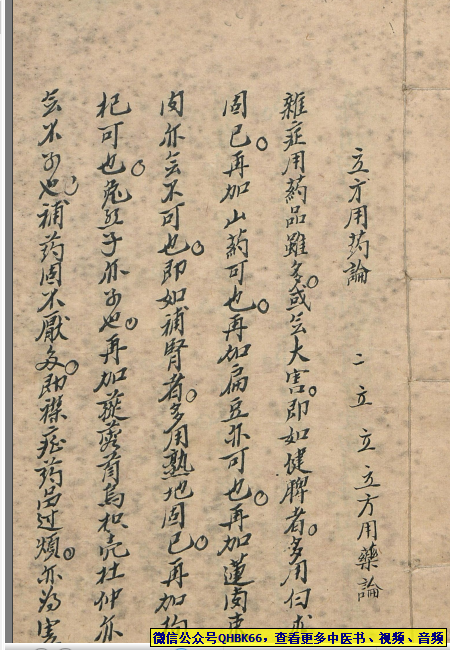 立方用药論 二 立 立 立方用藥論
雜症用藥品雖多。或无大害。即如健脾者。多用白朮
固已。再加山藥可也。再加扁豆亦可也。再加蓮肉
肉亦无不可也。即如補腎者。多用熟地固已。再加枸
杞可也。兔丝子亦可也。再加蓯蓉首烏枳壳杜仲亦
无不可也。補药固不厭多。即雜症药品过煩。亦為害
微信公众号QHBK66，查看更多中医书、视频、音频